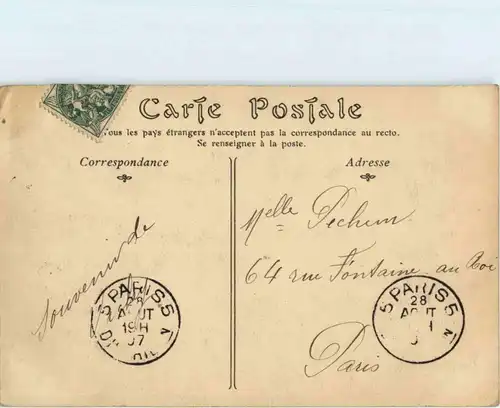 Carte Postale
Tous les pays étrangers n'acceptent pas la correspondance au recto.
Se renseigner à la poste.
Correspondance
Adresse
Souvenir de
Melle Pechem
64 rue Fontaine au Roi
Paris
5 PARIS 5
28
AOUT
19H
07
5 PARIS 5
28
AOUT
H